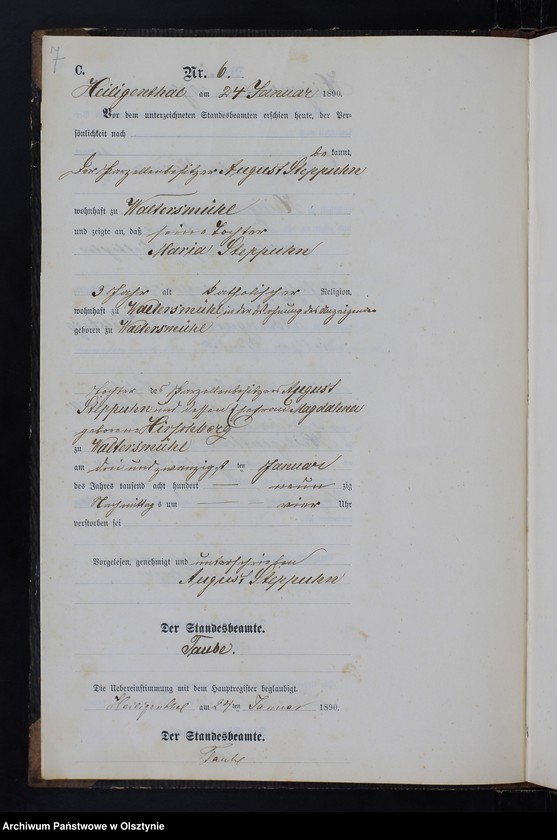 7
C.
Nr. 6.
Heiligenthal am 24 Januar 1890.
Vor dem unterzeichneten Standesbeamten erschien heute, der Per-
sönlichkeit nach
be kannt,
Der Parzellenbesitzer August Steppuhn
wohnhaft zu Waltersmühl
und zeigte an, daß seine Tochter
Maria Steppuhn
3 Jahr alt katholischer Religion,
wohnhaft zu Waltersmühl, in der Wohnung des Anzeigenden
geboren zu Waltersmühl
Tochter des Parzellenbesitzers August
Steppuhn und dessen Ehefrau Magdalena
geborene Hirschberg
zu Waltersmühl
am drei und zwanzigsten Januar
des Jahres tausend acht hundert neun zig
Nachmittags um vier Uhr
verstorben sei
Vorgelesen, genehmigt und unterschrieben
August Steppuhn
Der Standesbeamte.
Taube.
Die Uebereinstimmung mit dem Hauptregister beglaubigt.
Heiligenthal am 24ten Januar 1890.
Der Standesbeamte.
Taube
Archiwum Państwowe w Olsztynie